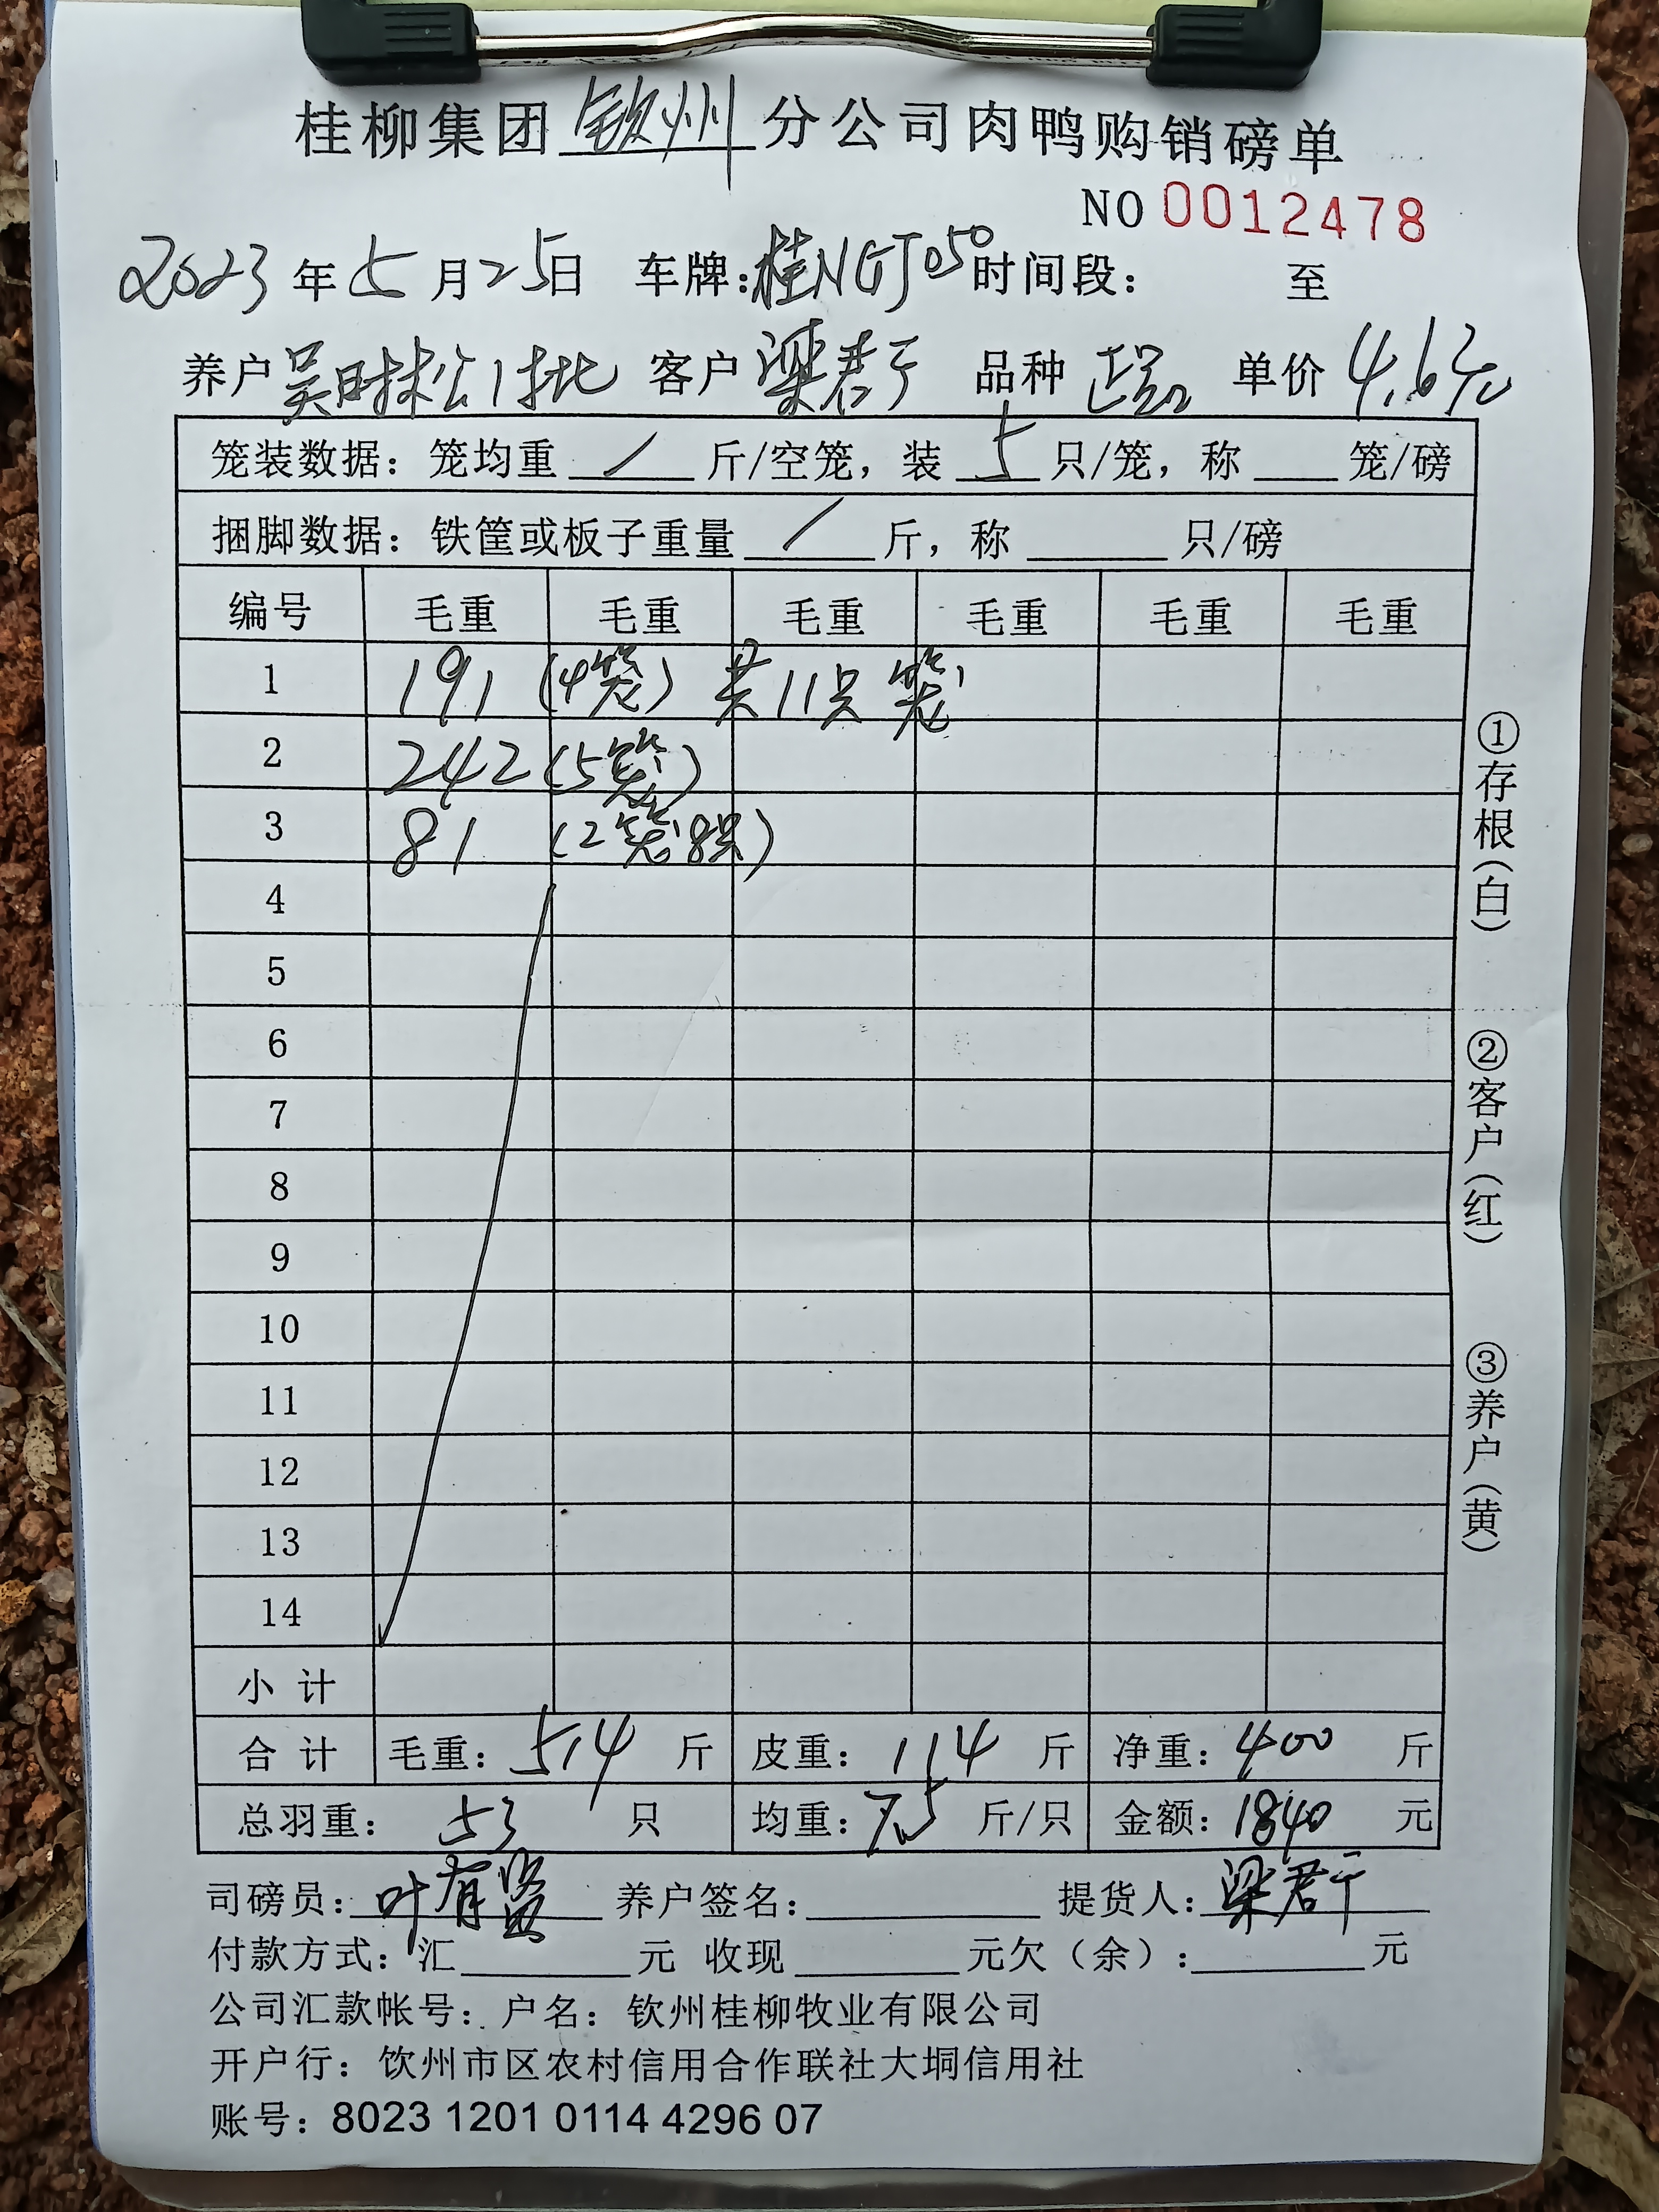 桂柳集团 钦州 分公司肉鸭购销磅单
NO 0012478
2023 年 5 月 25 日 车牌:桂NGJ050 时间段: 至
养户 吴时松1批 客户 梁君于 品种 单价 4.6元
笼装数据: 笼均重 / 斤/空笼, 装 5 只/笼, 称 笼/磅
捆脚数据: 铁筐或板子重量 / 斤, 称 只/磅
编号 毛重 毛重 毛重 毛重 毛重 毛重
1 191 (4笼) 共11只笼
2 242 (5笼)
3 81 (2笼8只)
4
5
6
7
8
9
10
11
12
13
14
小 计
合 计 毛重: 514 斤 皮重: 114 斤 净重: 400 斤
总羽重: 53 只 均重: 7.5 斤/只 金额: 1840 元
司磅员: 叶有 养户签名: 提货人: 梁君于
付款方式: 汇 元 收现 元欠(余): 元
公司汇款帐号: 户名: 钦州桂柳牧业有限公司
开户行: 饮州市区农村信用合作联社大垌信用社
账号: 8023 1201 0114 4296 07
①存根(白)
②客户(红)
③养户(黄)